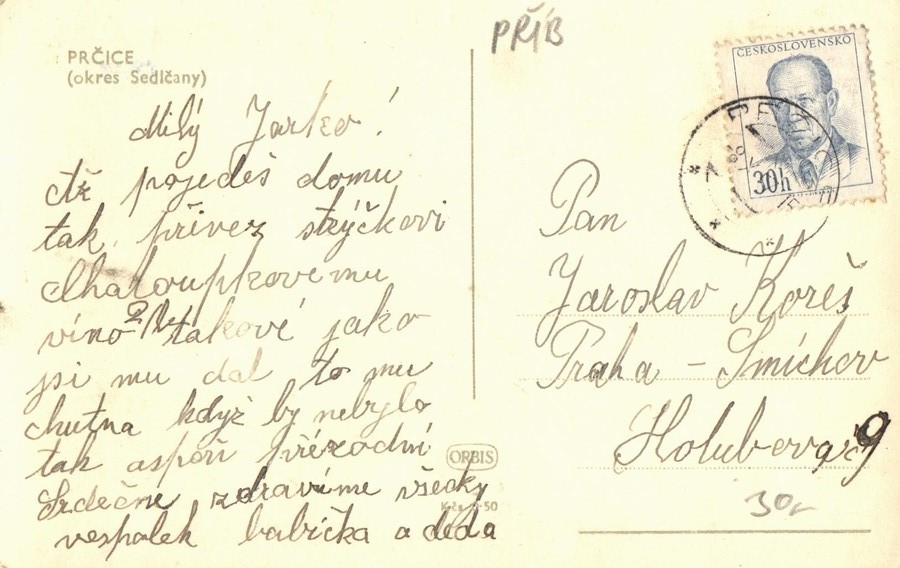 PŘÍB
ČESKOSLOVENSKO
30h
PRČICE
(okres Sedlčany)
Milý Jarko!
až pojedeš domu
tak, přivez strýčkovi
Chaloupkovemu
víno 2 lt takové jako
jsi mu dal to mu
chutna když by nebylo
tak aspoň přírodní
Srdečne zdravíme všecky
vespolek babička a deda
Pan
Jaroslav Koreš
Praha - Smíchov
Holubova 9
ORBIS
Kčs 0·50
30,-